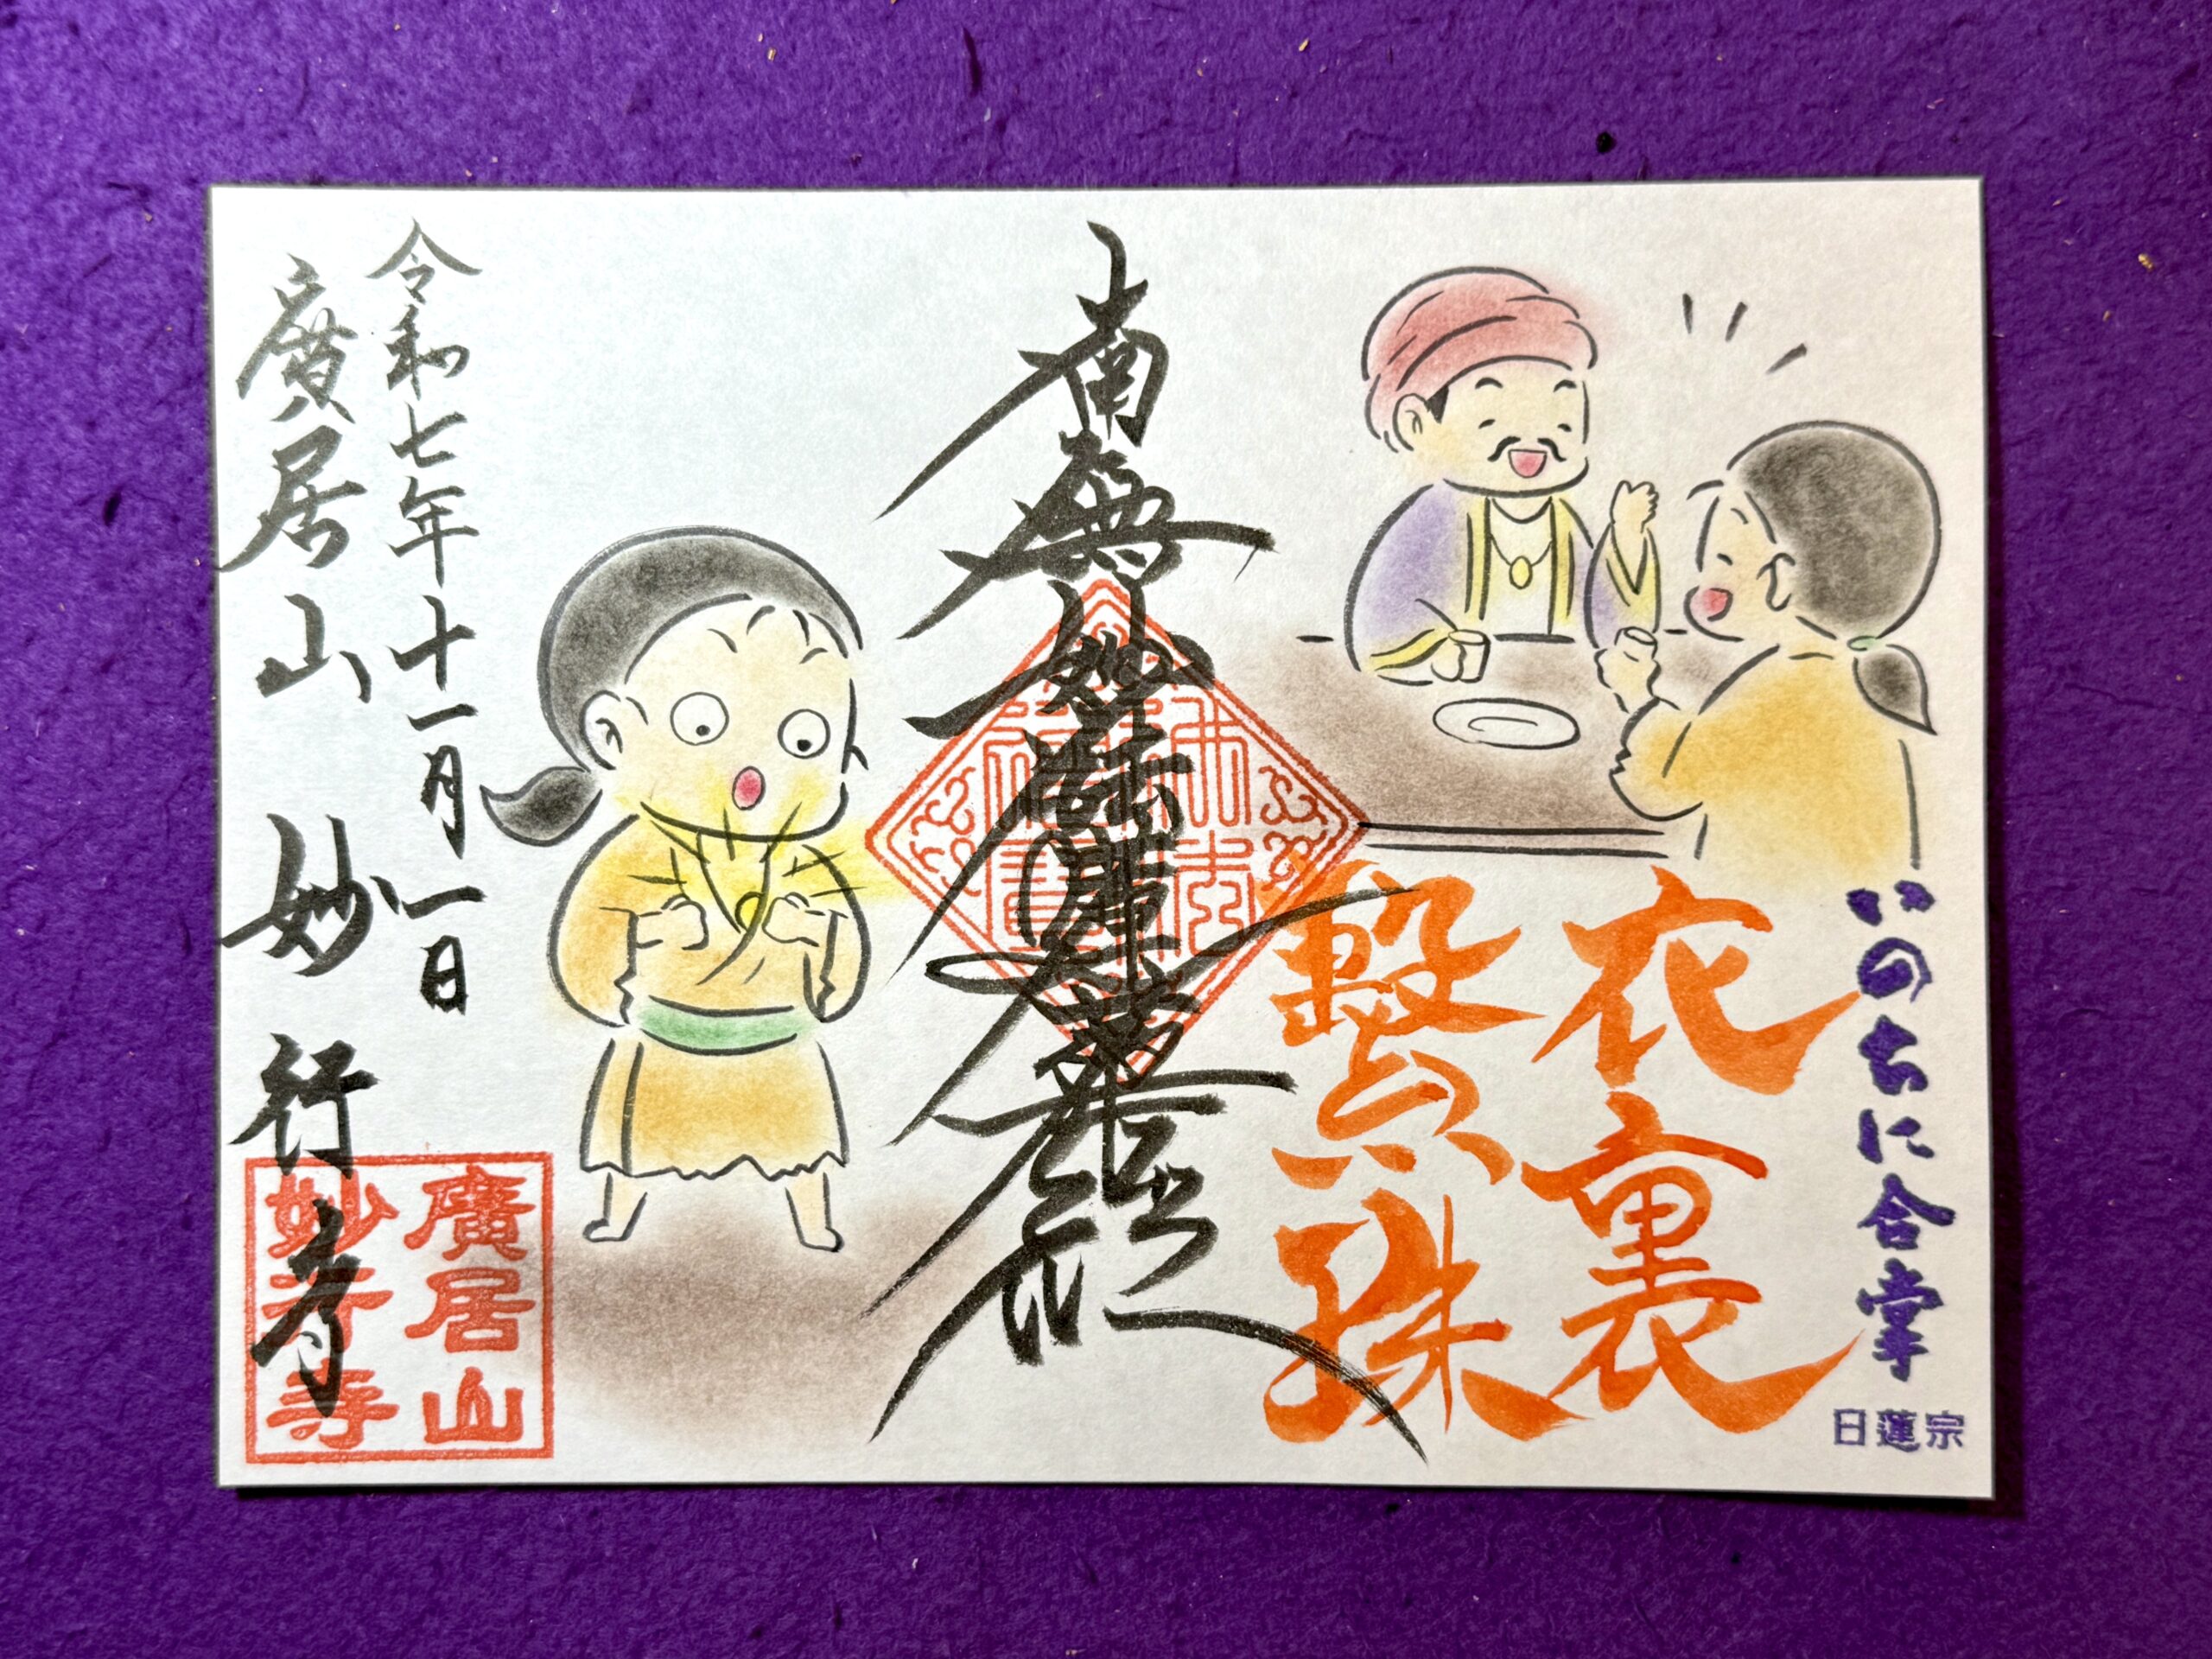 いのちに合掌
日蓮宗
衣裏
繋珠
南無妙法蓮華経
令和七年十一月一日
廣居山 妙行寺
廣居山
妙行寺